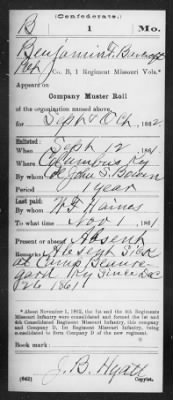 (Confederate.)
B 1 Mo.
Benjamin F.
Pvt, Co. B, 1 Regiment Missouri Vols.*
Appears on
Company Muster Roll
of the organization named above,
for Sept & Oct, 1862
Enlisted:
When Sept 12, 1861
Where Columbus Ky
By whom Col John S. Bowen
Period 1 year
Last paid:
By whom W. F. Haines
To what time Nov 1, 1861
Present or absent Absent
Remarks: Absent Sick
at Camp Beaure-
gard Ky Since Dec
26 1861
*About November 1, 1862, the 1st and 4th Regiments
Missouri Infantry were consolidated and formed the 1st and
4th Consolidated Regiment Missouri Infantry, this company
and Company D, 1st Regiment Missouri Infantry, being
consolidated to form Company D of the new regiment.
Book mark:
J. B. Hyatt
(642) Copyist.